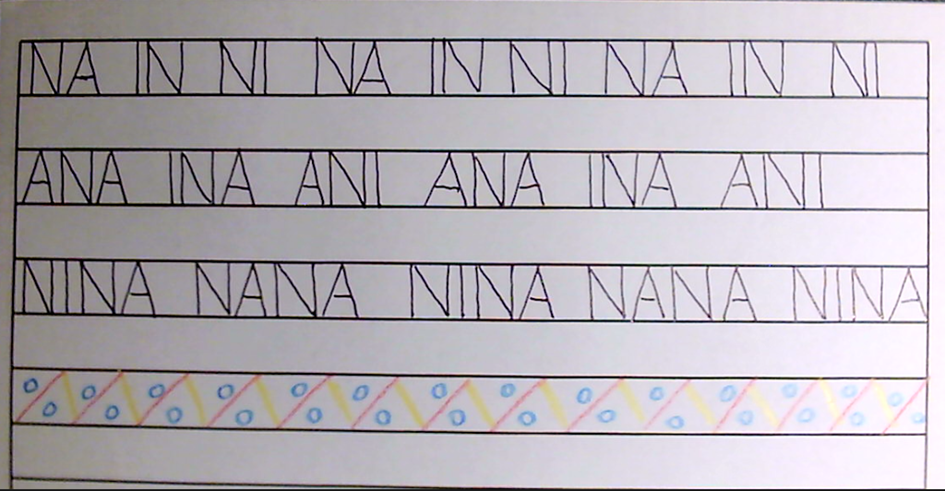 NA IN NI NA IN NI NA IN NI
ANA INA ANI ANA INA ANI
NINA NANA NINA NANA NINA